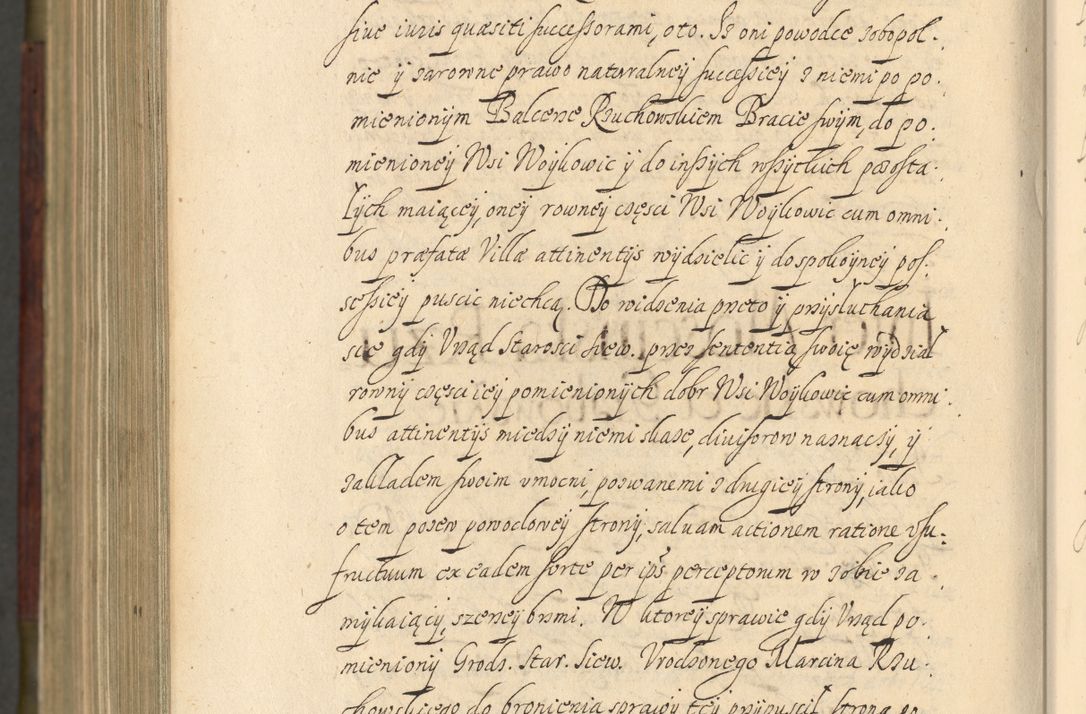 siue iuris quæsiti successorami, oto. Jż oni powodce zobopol-
nie ÿ zarowne prawo naturalneÿ successieÿ z niemi po po-
mienionÿm Balcerze Rzuchowskiem Bracie swÿm, do po-
mienioneÿ Wsi Woÿkowic ÿ do inszÿch wszÿtkich pozosta-
łÿch maiąceÿ, oneÿ rowneÿ częsci Wsi Woÿkowic cum omni-
bus præfatæ Villæ attinentÿs wÿdzielic ÿ do spokoÿneÿ pos-
sessieÿ puscic niechcą. Do widzenia przeto ÿ przÿsłuchania
się gdÿ Vrząd Starosci siew. przez sententią swoię wÿdział
rownÿ częsci ieÿ pomienionÿch dobr Wsi Woÿkowic cum omni-
bus attinentÿs międzÿ niemi skaze, diuisorow naznaczÿ, ÿ
zakładem swoim vmocni, pozwanemi z drugieÿ stronÿ, iako
o tem pozew powodoweÿ stronÿ, saluam actionem ratione vsu-
fructuum ex eadem sorte per ip̃s perceptorum w sobie za-
mÿkaiącÿ, szerzeÿ brzmi. W ktoreÿ sprawie gdÿ Vrząd po-
mienionÿ Grodz. Star. Siew. Vrodzonego Marcina Rzu-
chowskiego do bronienia sprawÿ teÿ przÿpuscił strona po-